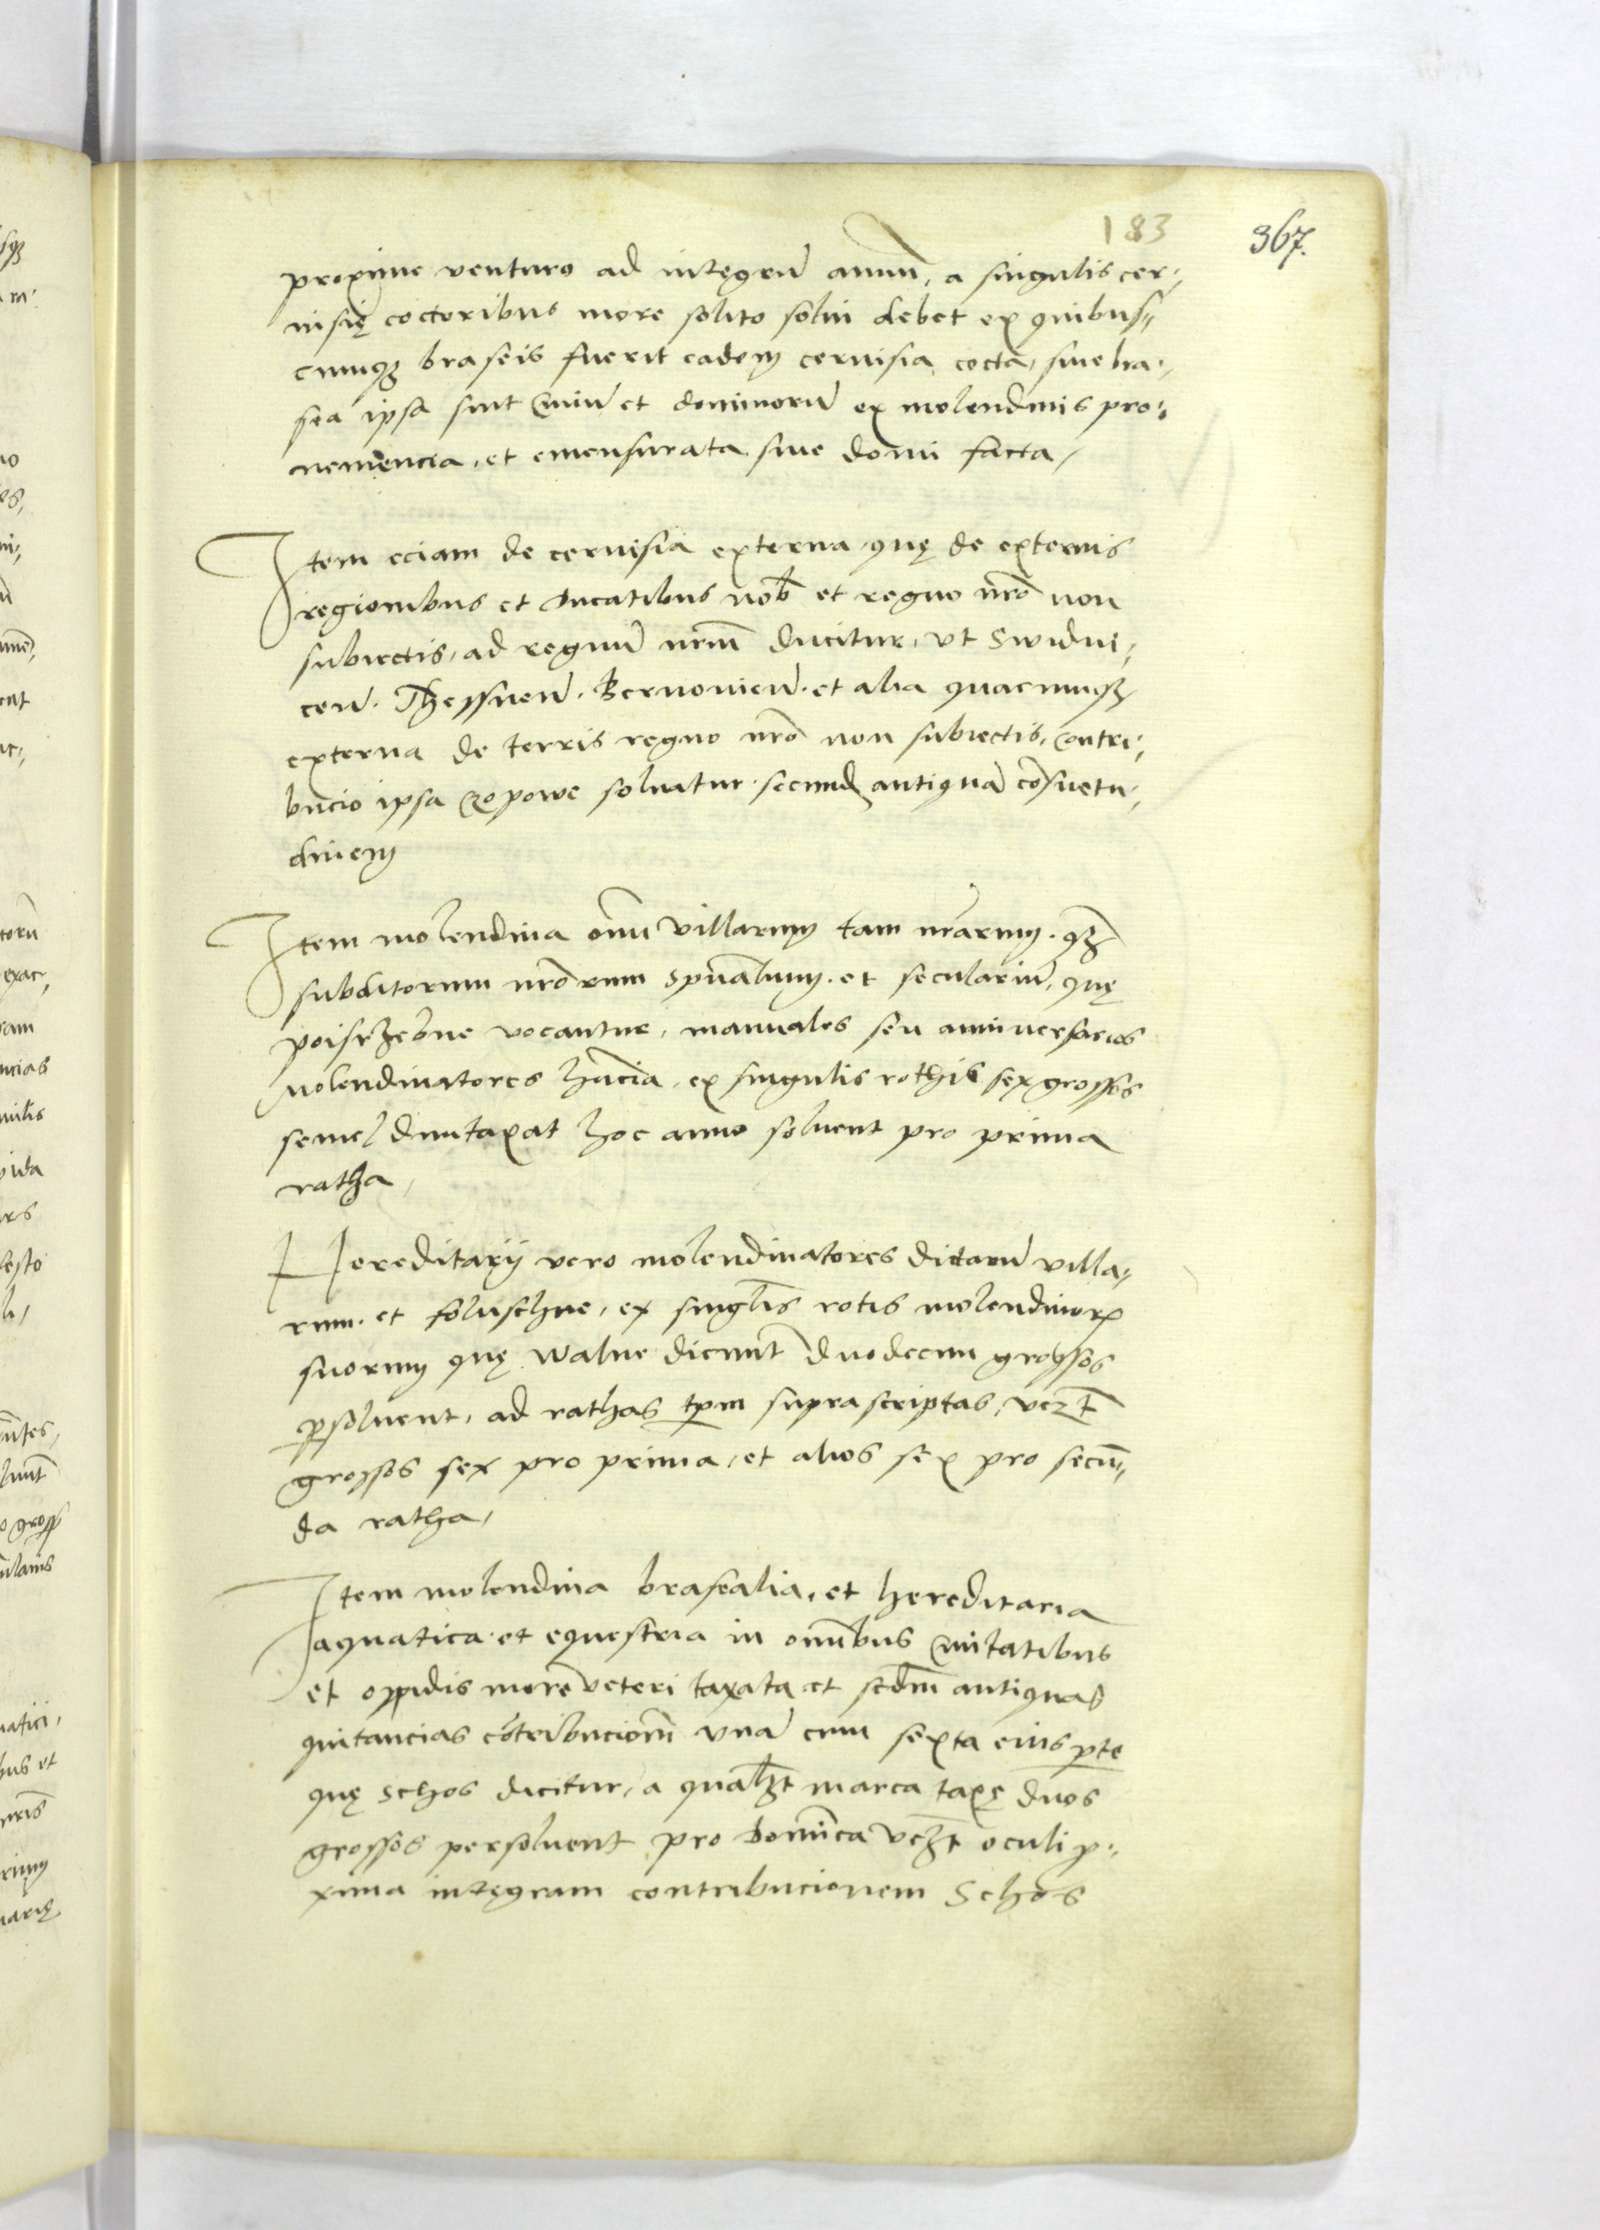 183
367.
proxime venturo ad integrũ annũ, a singulis cer⸗
uisię coctoribus more solito solui debet ex quibus⸗
cumqꝫ braseis fuerit eadem ceruisia cocta, siue bra⸗
sea ipsa sint Ciuiũ et dominorũ ex molendinis pro⸗
uemencia, et emensurata siue domi facta,
Item eciam de ceruisia externa, quę de externis
regionibus et ducatibus nob̃ et regno nr̃o non
subiectis, ad regnũ nr̃m ducitur, vt Swidni⸗
cen̄. Thessnen̄. Bernouien̄. et alia quacumqꝫ
externa de terris regno nr̃o non subiectis, contri⸗
bucio ipsa czopowe soluatur secund antiquã cõsuetu⸗
dinem
Item molendina om̃iũ villarum tam nr̃arum, qꝫ
subditorum nr̃orum spũalium et seculariũ, quę
poisrzebne vocantur, manuales seu anniuersarios
molendinatores hñcia, ex singulis rothis sex grossos
semel duntaxat hoc anno soluent pro prima
ratha,
Hereditarij vero molendinatores dictarũ villa⸗
rum et foluschne, ex singlis̃ rotis molendinorꝝ
suorum quę walne dicunt̃ duodecim grossos
ꝑsoluent, ad rathas tp̃m suprascriptas, vczt̃
grossos sex pro prima, et alios sex pro secũ⸗
da ratha,
Item molendina brasealia, et hereditaria
aquatica et equestria in om̃ibus Ciuitatibus
et oppidis more veteri taxata et scdm̃ antiquas
quitancias cõtribucionũ vnã cum sexta eius ꝑte
quę schos dicitur, a qualꝫt marca taxę duos
grossos persoluent pro dominica vczt̃ oculi ꝓ⸗
xima integram contribucionem Schos